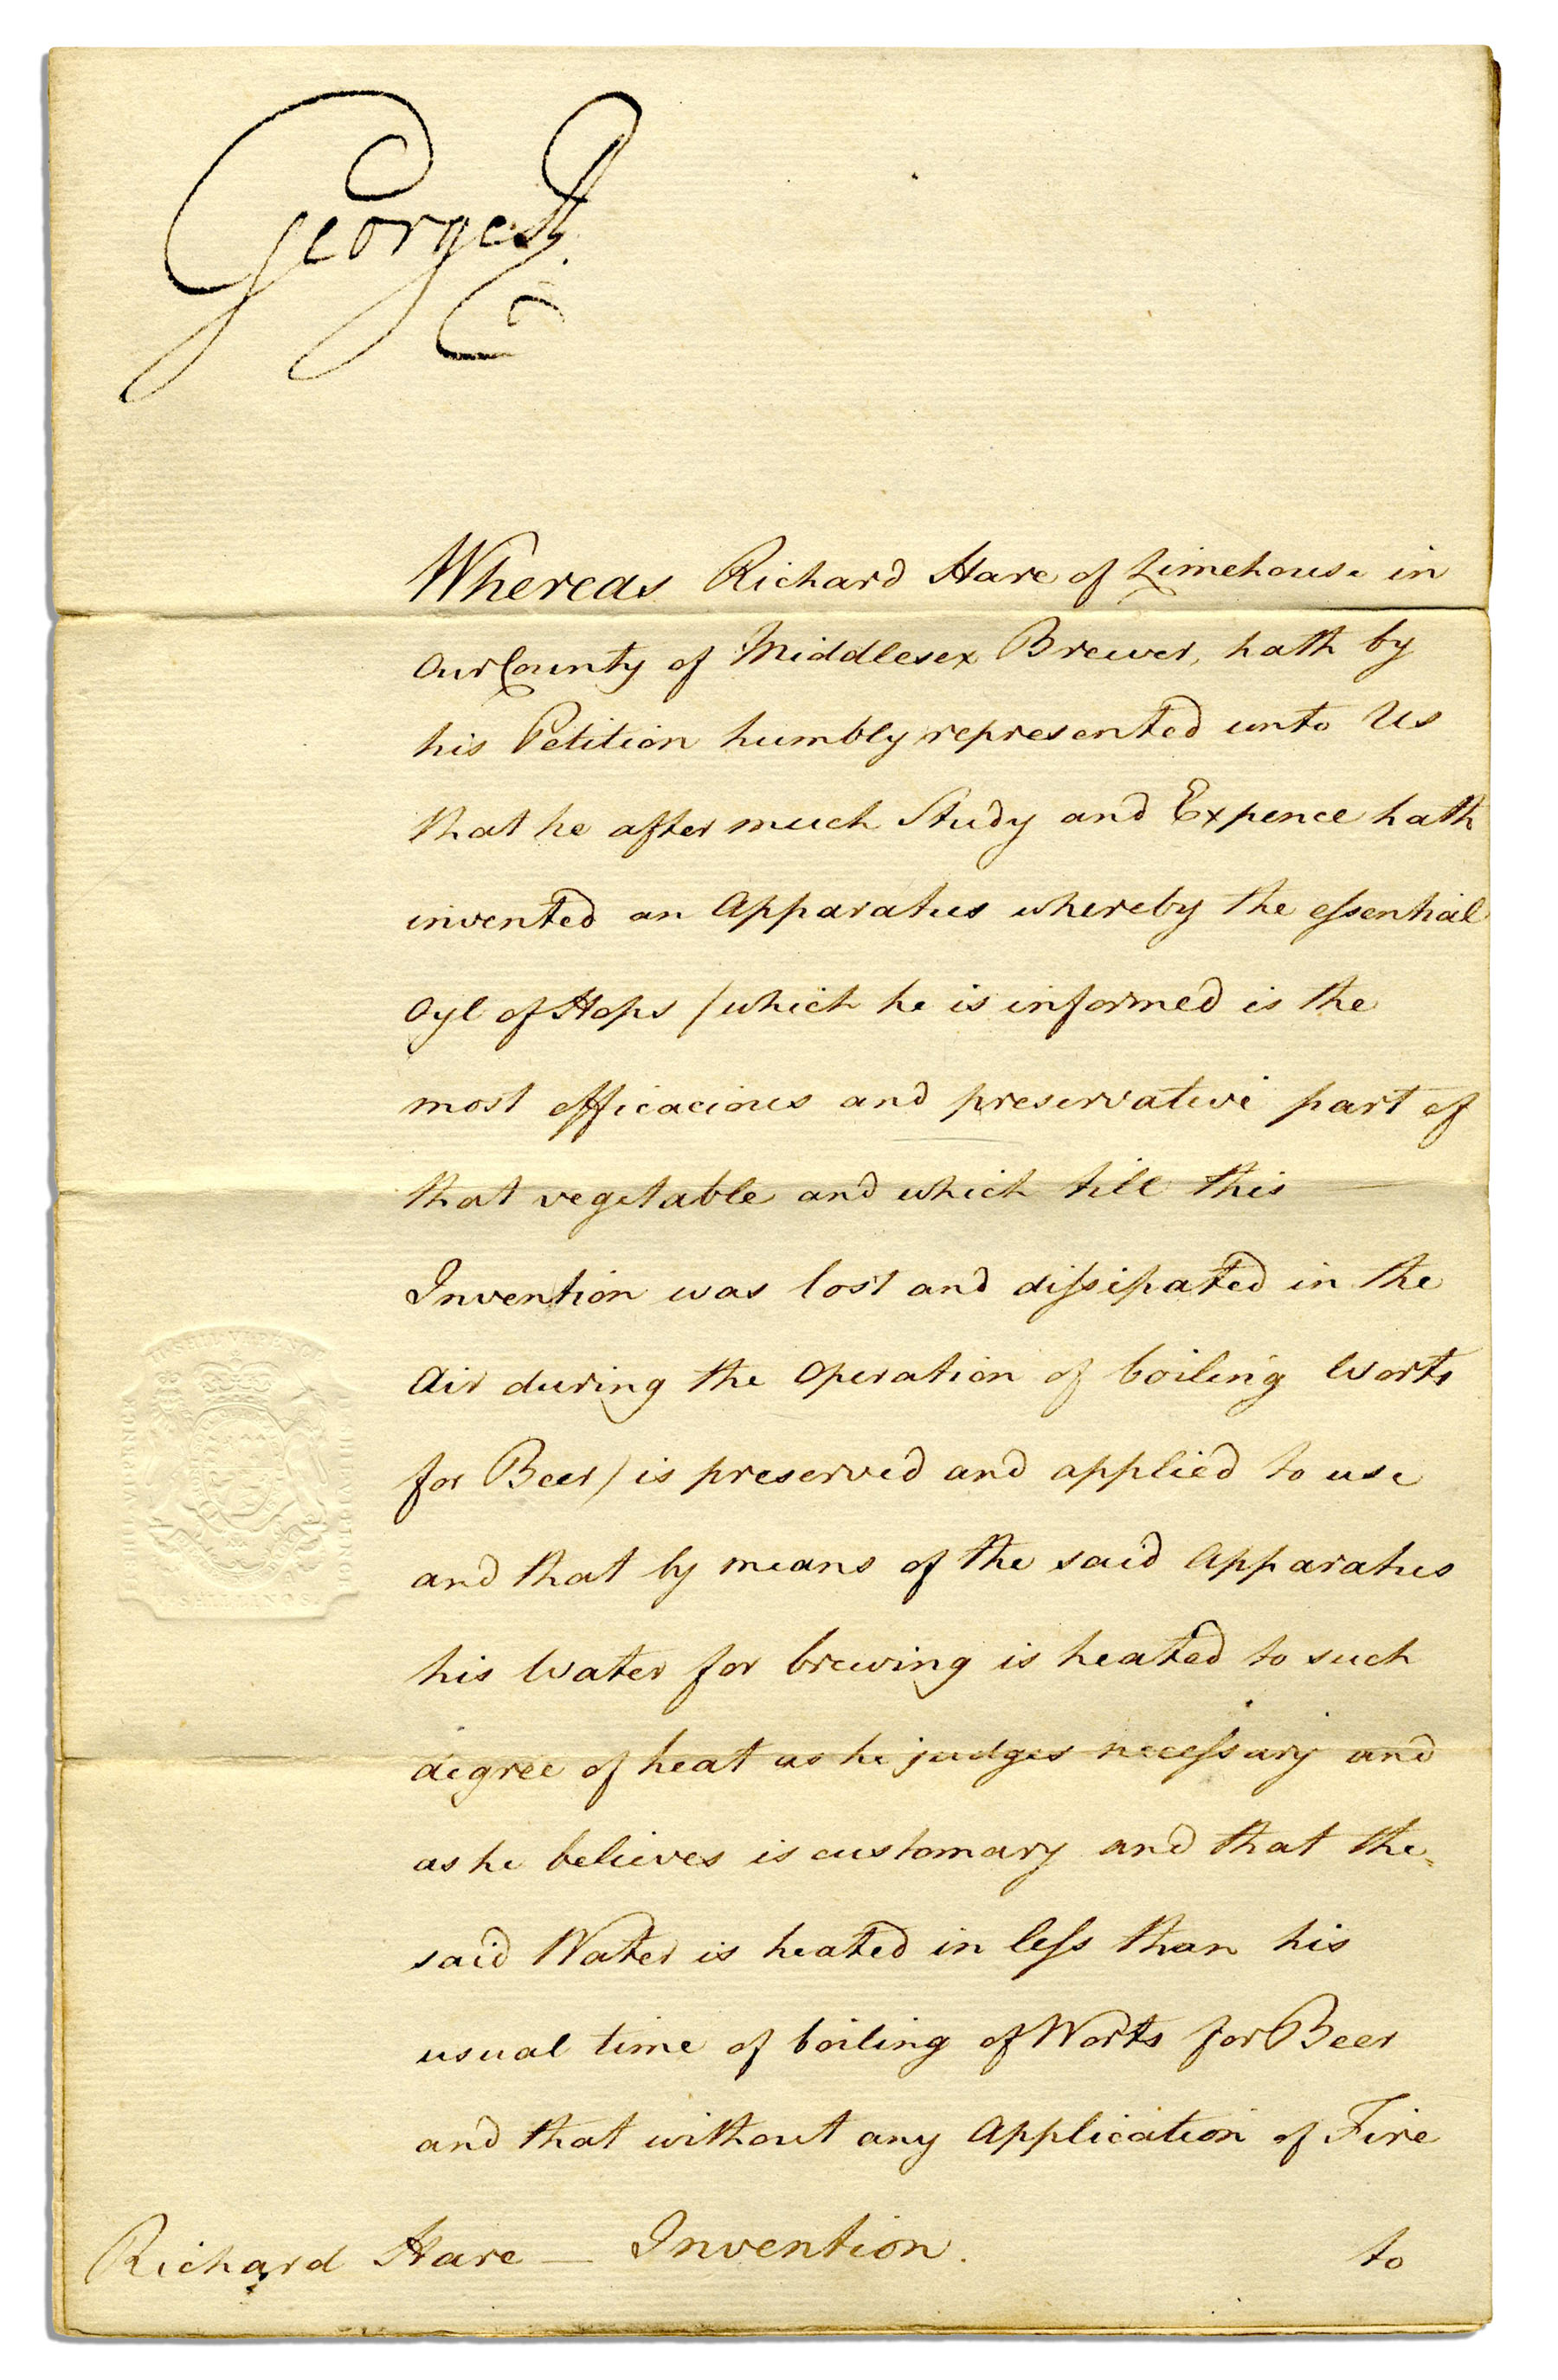 George R.
Whereas Richard Hare of Limehouse in
Our County of Middlesex Brewer, hath by
his Petition humbly represented unto Us
that he after much Study and Expence hath
invented an Apparatus whereby the eſsential
Oyl of Hops /which he is informed is the
most efficacious and preservative part of
that vegetable and which till this
Invention was lost and diſsipated in the
Air during the Operation of boiling Worts
for Beer/ is preserved and applied to use
and that by means of the said Apparatus
his Water for brewing is heated to such
degree of heat as he judges neceſsary and
as he believes is customary and that the
said Water is heated in leſs than his
usual time of boiling of Worts for Beer
and that without any Application of Fire
Richard Hare — Invention. to